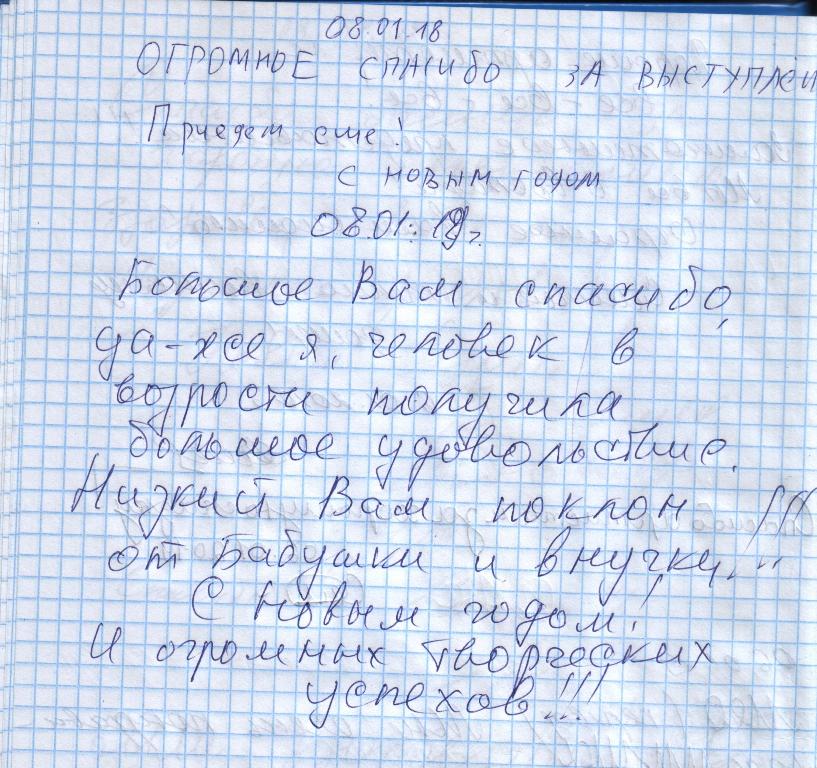 08.01.18
ОГРОМНОЕ СПАСИБО ЗА ВЫСТУПЛЕН
Приедем еще!
С новым годом
08.01.18г.
Большое Вам спасибо,
да-же я, человек в
возрости получила
большое удовольствие.
Низкий Вам поклон
от Бабушки и внучки. !!!
С Новым годом!
И огромных творческих
успехов!!!